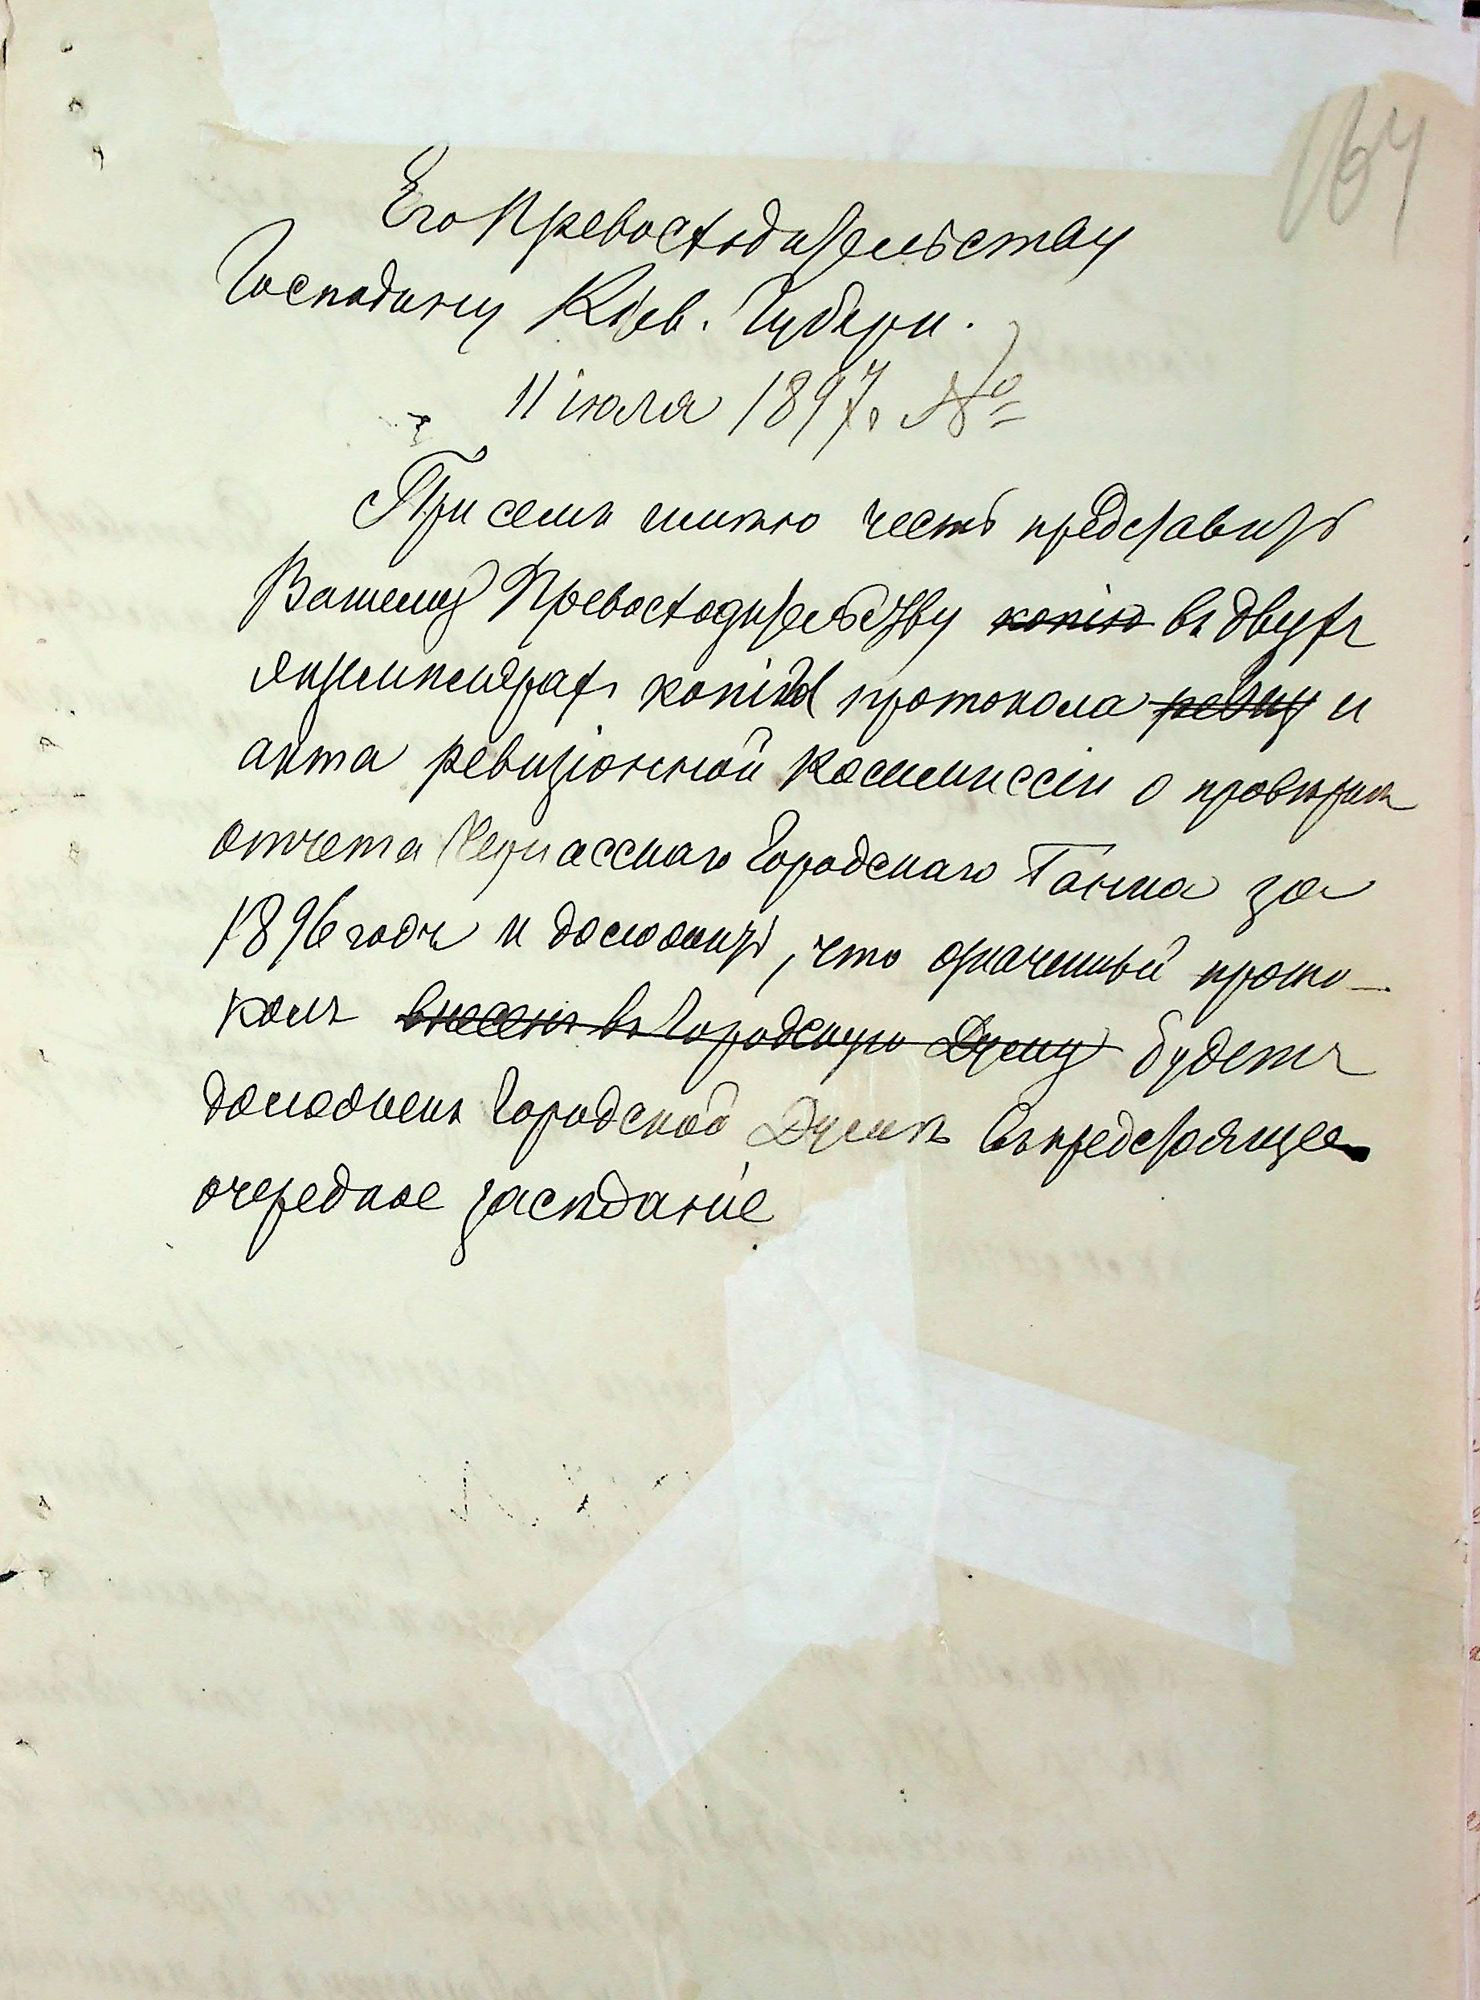 164
Его Превосходительству
Господину Кіев. Губерн.
11 іюля 1897 г. №
При семъ имѣю честь представить
Вашему Превосходительству копію въ двухъ
экземплярахъ копіи протокола ревиз и
акта ревизіонной коммиссіи о провѣркѣ
отчета Черкасскаго Городскаго Банка за
1896 годъ и доложить, что означенный прото-
колъ внесенъ въ Городскую Думу будетъ
доложенъ Городской Думѣ въ предстоящее
очередное засѣданіе